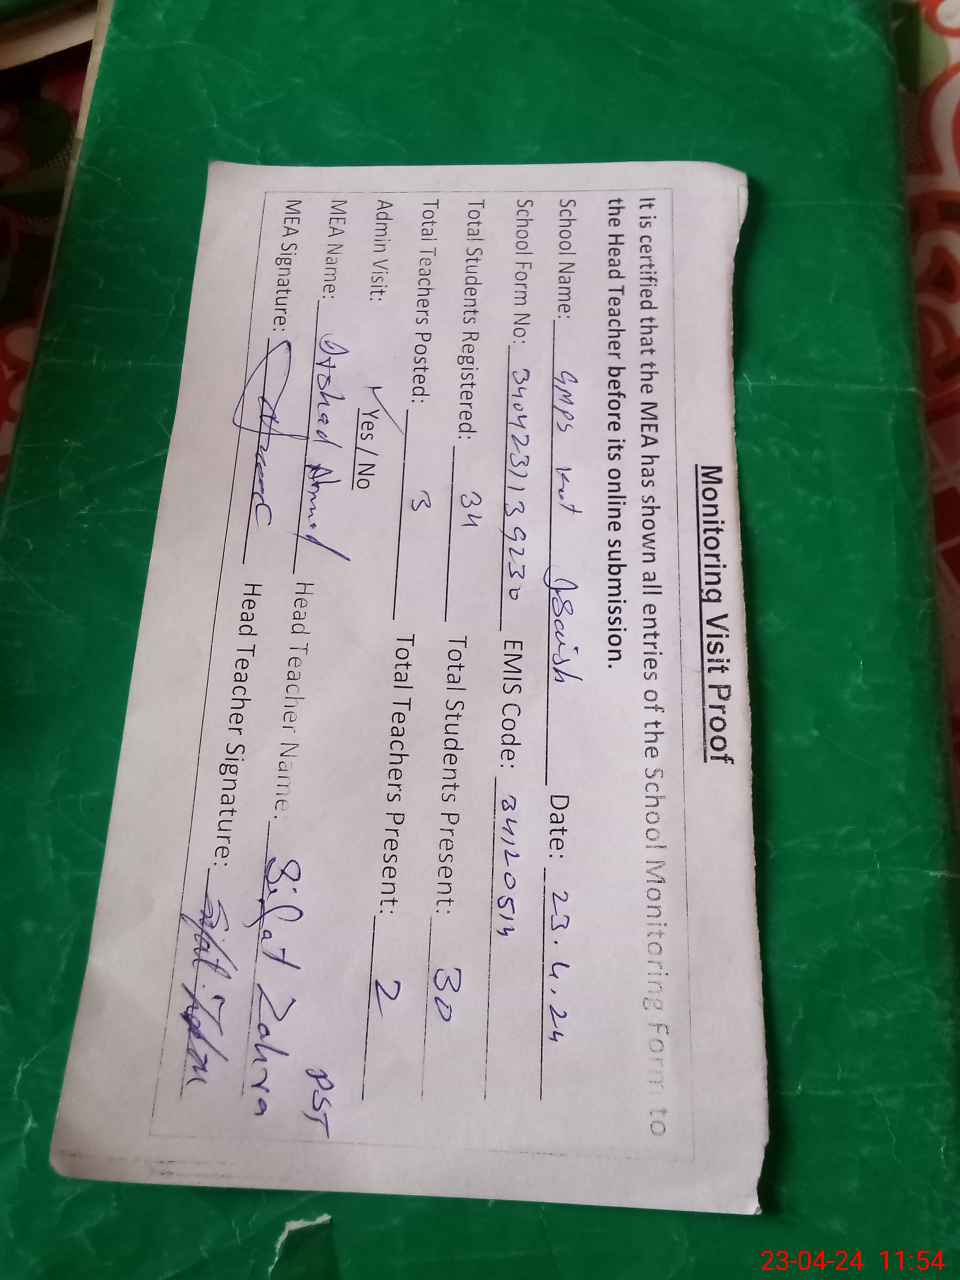 Monitoring Visit Proof
It is certified that the MEA has shown all entries of the School Monitoring Form to
the Head Teacher before its online submission.
School Name: GMPS Kot Date: 23.4.24
School Form No: EMIS Code: 34120514
Total Students Registered: 34 Total Students Present: 30
Total Teachers Posted: 3 Total Teachers Present: 2
Admin Visit: ✓ Yes / No PST
MEA Name: Arshad Ahmed Head Teacher Name: Sifat Zahra
MEA Signature: Head Teacher Signature:
23-04-24 11:54